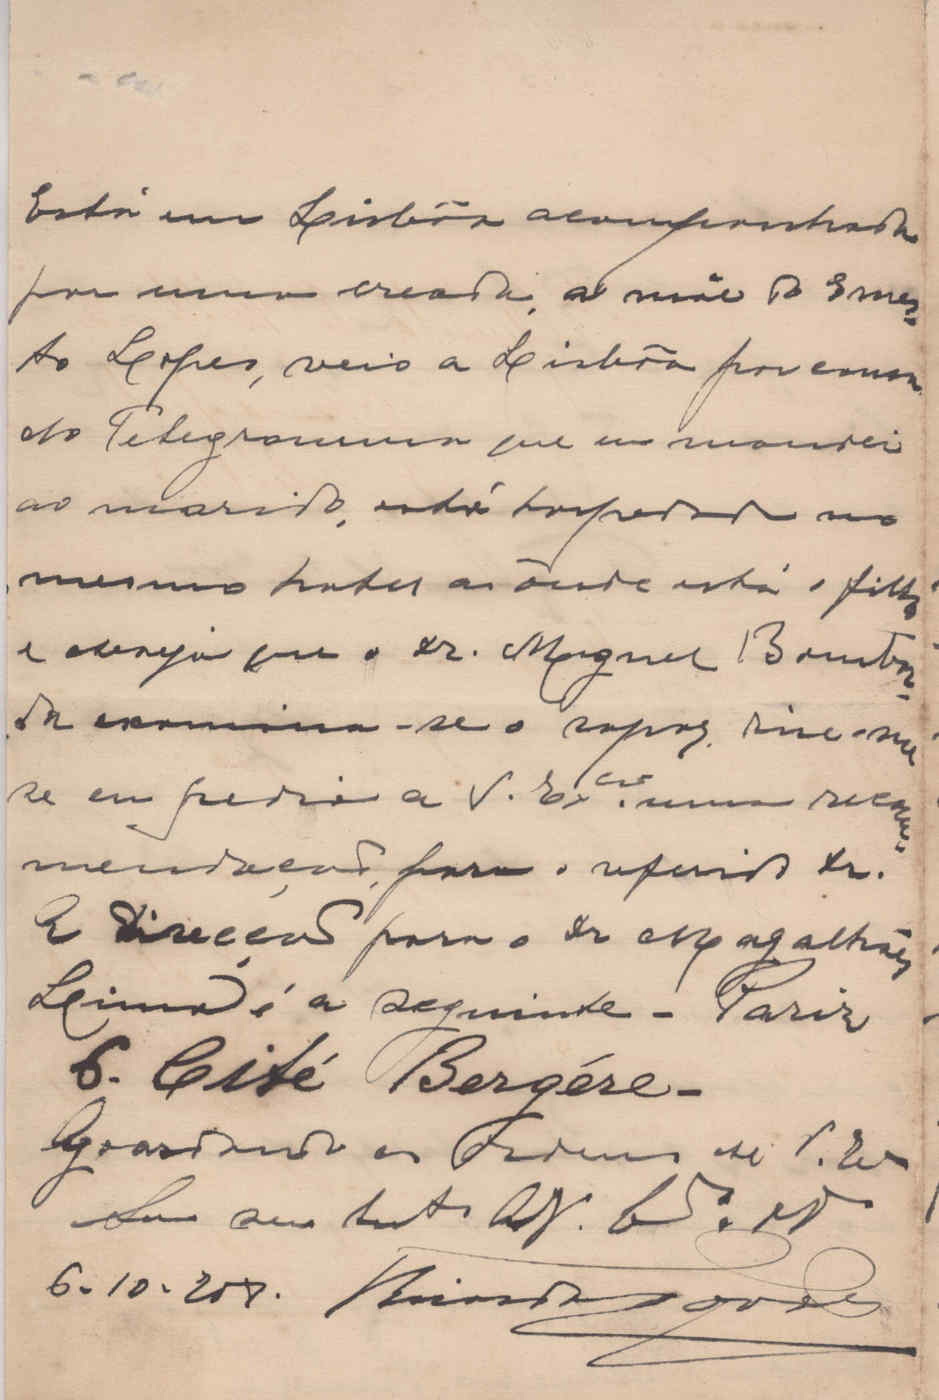 Está em Lisbôa acompanhada
por uma creada, a mãe do Ernes-
to Lopes, veio a Lisbôa por causa
do Telegramma que eu mandei
ao marido, está hospedada no
mesmo hotel aonde está o filho
e deseja que o dr. Miguel Bombar-
da examina-se o rapaz, disse-me
se eu pedia a V. Ex.cia uma recom-
mendação, para o referido dr.
A direcção para o dr Magalhães
Lima é a seguinte - Pariz
6. Cité Bergére -
Aguardando as Ordens de V. Ex
Sou seu
6-10-